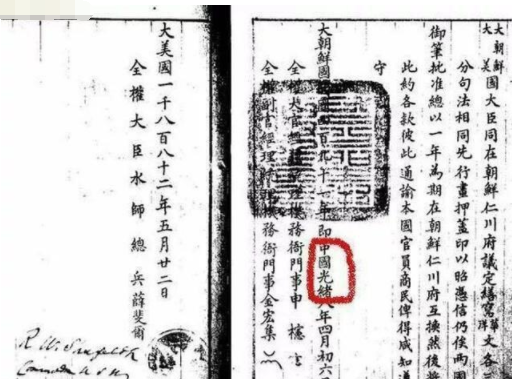 大朝鮮
大美
國大臣同在朝鮮仁川府議定繕寫華洋文各三
分句法相同先行畫押蓋印以昭憑信仍俟兩國
御筆批准總以一年為期在朝鮮仁川府互換然後將
此約各款彼此通諭本國官員商民俾得咸知
守
大朝鮮國 四百九十 年即中國光緒八年四月初六
全權大官經理 機務衙門事申櫶
全權副官經理統理機務衙門事金宏集
大美國一千八百八十二年五月廿二日
全權大臣水師總兵薛斐爾
R. W. Shufeldt
Commodore